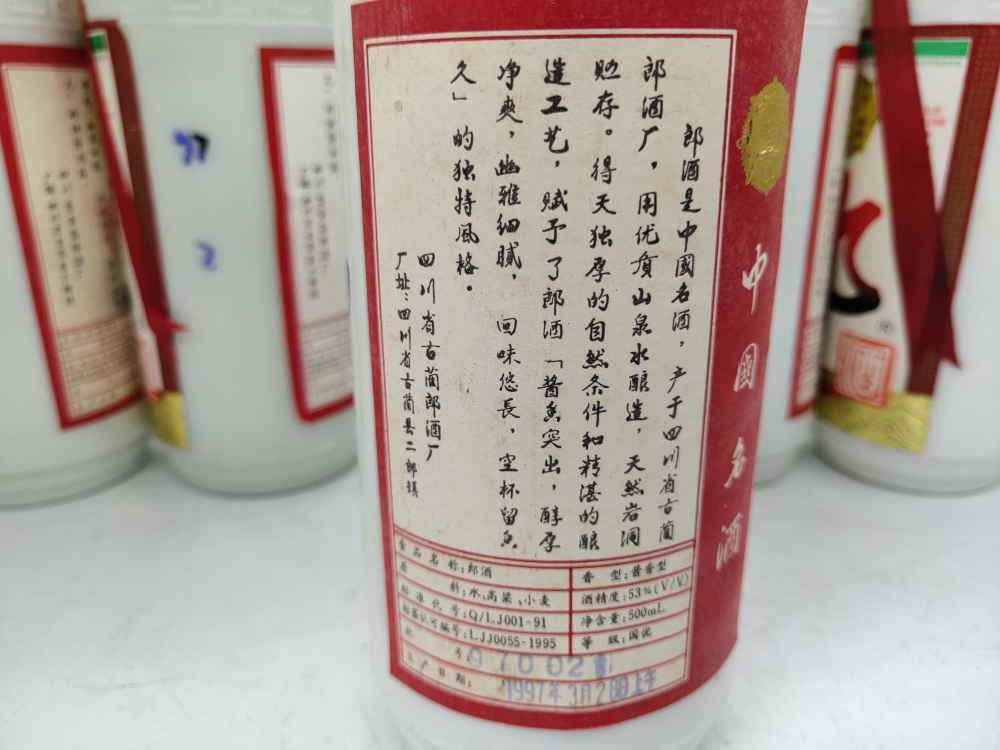 郎酒是中國名酒，产于四川省古蔺
郎酒厂，用优质山泉水酿造，天然岩洞
贮存。得天独厚的自然条件和精湛的酿
造工艺，赋予了郎酒「酱香突出，醇厚
净爽，幽雅细腻，回味悠長，空杯留香
久」的独特风格。
四川省古蔺郎酒厂
厂址：四川省古蔺县二郎镇
食品名称：郎酒
原料：水、高粱、小麦
标准代号：Q/LJ001-91
标签认可编号：LJJ0055-1995
批号：
生产日期：1997年3月2日
香型：酱香型
酒精度：53%(V/V)
净含量：500mL
等级：国优
中國名酒
97
2